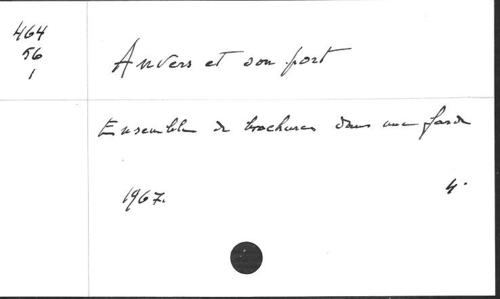 464
56
1
Anvers et son port
Ensemble de brochures dans une farde
1967.
4.